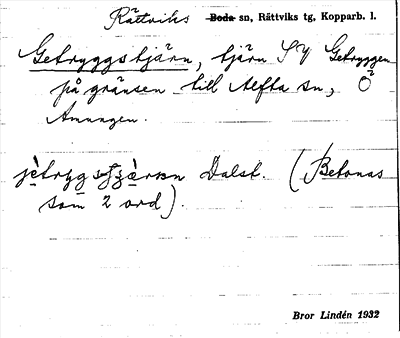 Rättviks Boda sn, Rättviks tg, Kopparb. l.
Getryggstjärn, tjärn SV Getryggen
på gränsen till Alfta sn, Ö
Amungen.
Dalat. (Betonas
som 2 ord).
Bror Lindén 1932